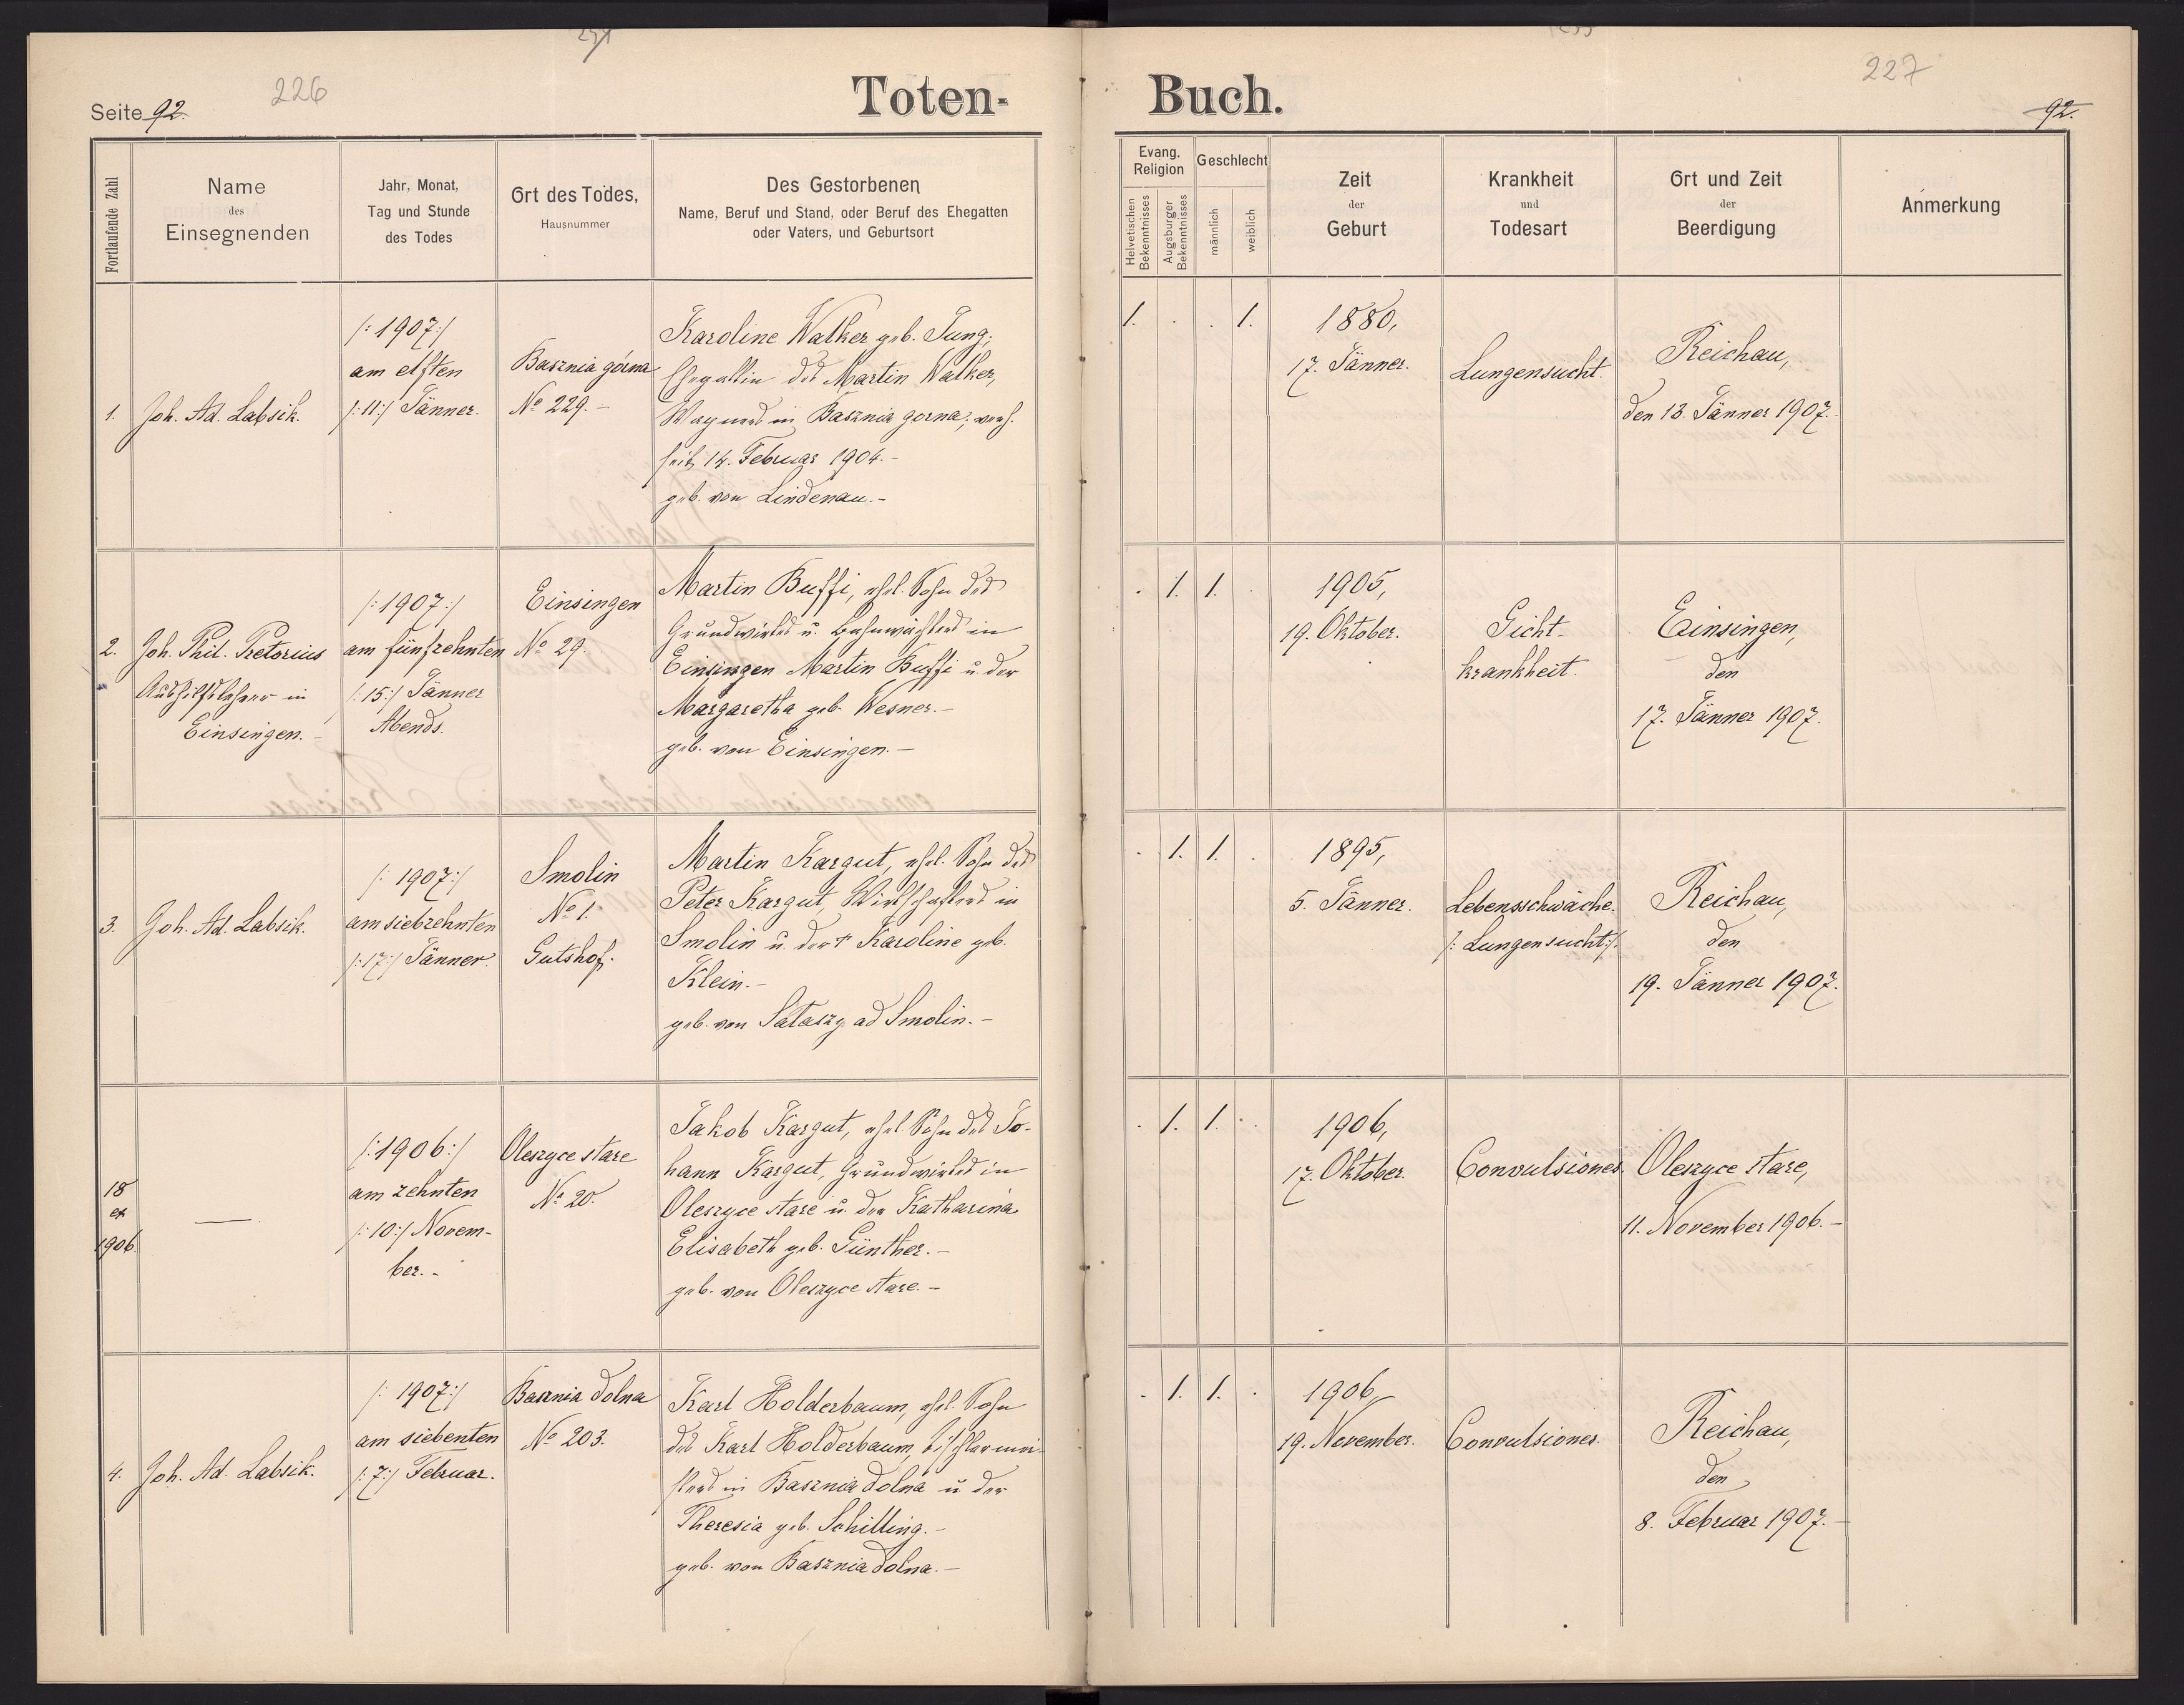 Seite 92.
226
Toten-
Fortlaufende Zahl
Name
des
Einsegnenden
Jahr, Monat,
Tag und Stunde
des Todes
Ort des Todes,
Hausnummer
Des Gestorbenen
Name, Beruf und Stand, oder Beruf des Ehegatten
oder Vaters, und Geburtsort
1.
Joh. Ad. Labsik.
/:1907:/
am elften
/:11:/ Jänner.
Basznia górna
No 229.-
Karoline Walker geb. Jung;
Ehegattin des Martin Walker,
Wagners in Basznia gorna; verh.
seit 14. Februar 1904.-
geb. von Lindenau.-
2.
Joh. Phil. Pretorius
Aushilfslehrer in
Einsingen.-
/:1907:/
am fünfzehnten
/:15:/ Jänner
Abends.
Einsingen
No 29.
Martin Buffi, ehel. Sohn des
Grundwirtes u. Bahnwächters in
Einsingen Martin Buffi u. der
Margaretha geb. Wesner.-
geb. von Einsingen.-
3.
Joh. Ad. Labsik.
/:1907:/
am siebzehnten
/:17:/ Jänner.
Smolin
No 1.
Gutshof.
Martin Kargut, ehel. Sohn des
Peter Kargut, Wirtschafters in
Smolin u. der † Karoline geb.
Klein.-
geb. von ad Smolin.-
18
ex
1906.
—
/:1906:/
am zehnten
/:10:/ Novem-
ber.-
Oleszyce stare
No 20.
Jakob Kargut, ehel. Sohn des Jo-
hann Kargut, Grundwirtes in
Oleszyce stare u. der Katharina
Elisabeth geb. Günther.-
geb. von Oleszyce stare.-
4.
Joh. Ad. Labsik.
/:1907:/
am siebenten
/:7:/ Februar.
Basznia dolna
No 203.
Karl Holderbaum, ehel. Sohn
des Karl Holderbaum, Tischlermei-
sters in Basznia dolna u. der
Theresia geb. Schilling.-
geb. von Basznia dolna.-
Buch.
227
92.
Evang.
Religion
Helvetischen
Bekenntnisses
Augsburger
Bekenntnisses
Geschlecht
männlich
weiblich
Zeit
der
Geburt
Krankheit
und
Todesart
Ort und Zeit
der
Beerdigung
Anmerkung
1. . . 1.
1880,
17. Jänner.
Lungensucht.
Reichau,
den 13. Jänner 1907.
. 1. 1. .
1905,
19. Oktober.
Gicht-
krankheit.
Einsingen,
den
17. Jänner 1907.
. 1. 1. .
1895,
5. Jänner.
Lebensschwäche.
/:Lungensucht:/.
Reichau,
den
19. Jänner 1907.
. 1. 1. .
1906,
17. Oktober.
Convulsiones.
Oleszyce stare,
11. November 1906.-
. 1. 1. .
1906,
19. November.
Convulsiones.
Reichau,
den
8. Februar 1907.-